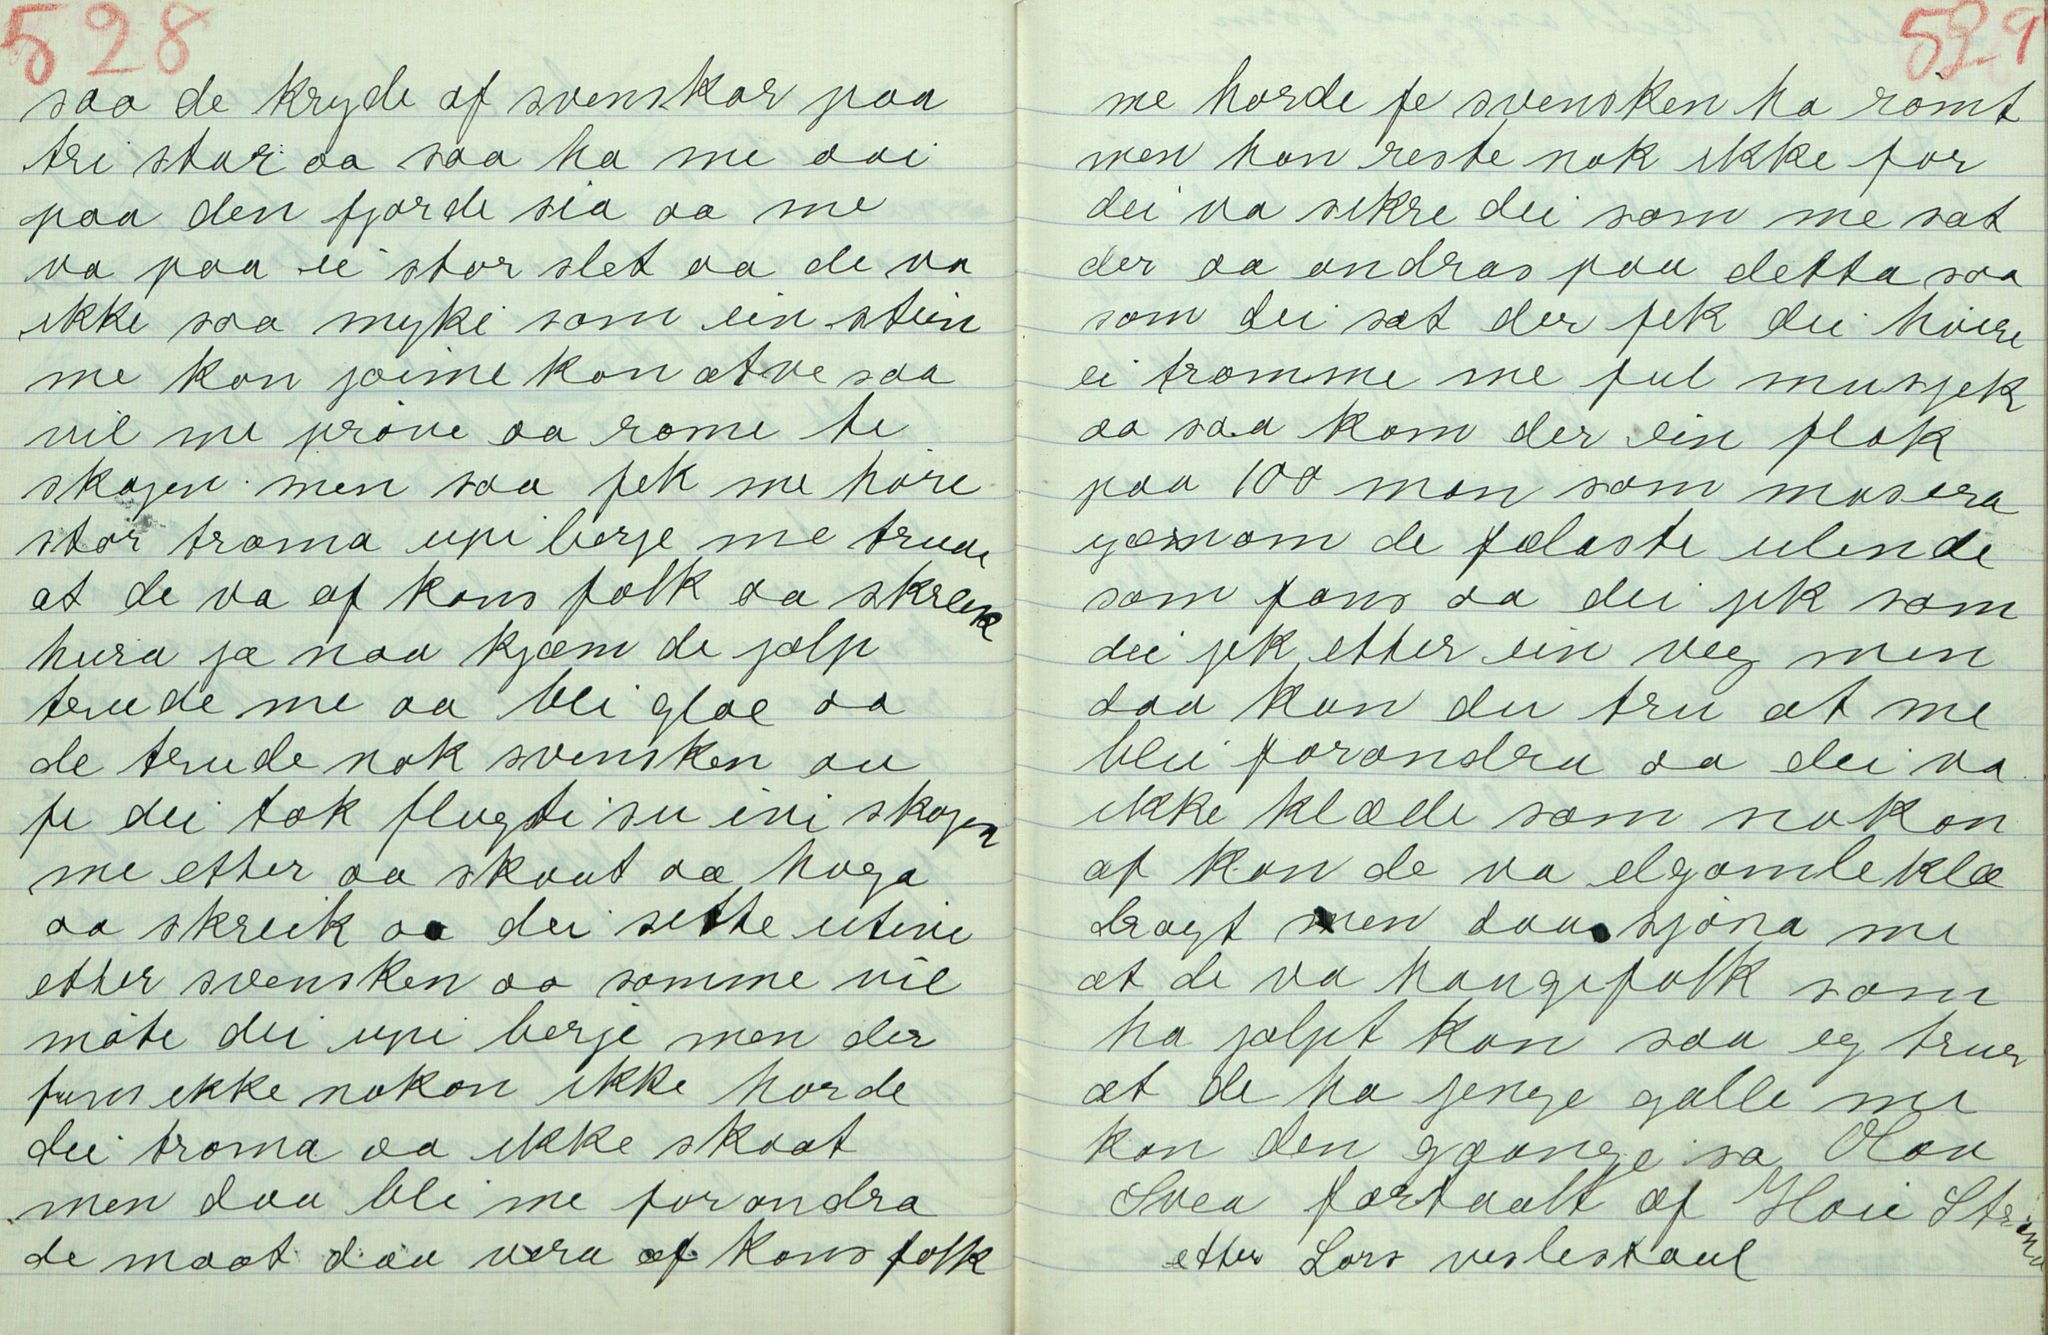 528
saa de kryde af svenskar paa
tri star aa saa ha me aai
paa den fjorde sia aa me
va paa ei stor slet aa de va
ikke saa myke som ein stein
me kon joime kon atve saa
vil me prøve aa rome te
skogen men saa fek me høre
stor troma upi berje me trude
at de va af kons folk aa skreik
hura ja naa kjæm de jælp
trude me aa blei glae aa
de trude nok svensken au
fe dei tok flugti su ini skogen
me etter aa skaut aa hoga
aa skreik aa dei sette utive
etter svensken aa somme vil
møte dei upi berje men der
funs ikke nokon ikke horde
dei troma aa ikke skaat
men daa bli me forondra
de maat daa vera af kons folk
529
me horde fe svensken ha rømt
men han reste nok ikke for
dei va sikre dei som me sat
der aa ondras paa detta saa
som dei sat der fek dei høire
ei tromme me ful musjek
aa saa kom der ein flok
paa 100 mon som masera
gjænom de fælaste ulende
som fans aa dei jek som
dei jek etter ein veg men
daa kan du tru at me
blei forondra aa dei va
ikke klæde som nokon
af kon de va elgomle klæ
dragt men daa sjøna me
at de va haugefolk som
ha jælpt kon saa eg truer
at de ha jenge galle me
kon den ggonge sa Olav
Svea fortaalt af Haie Strøma
etter Lars veslestaul